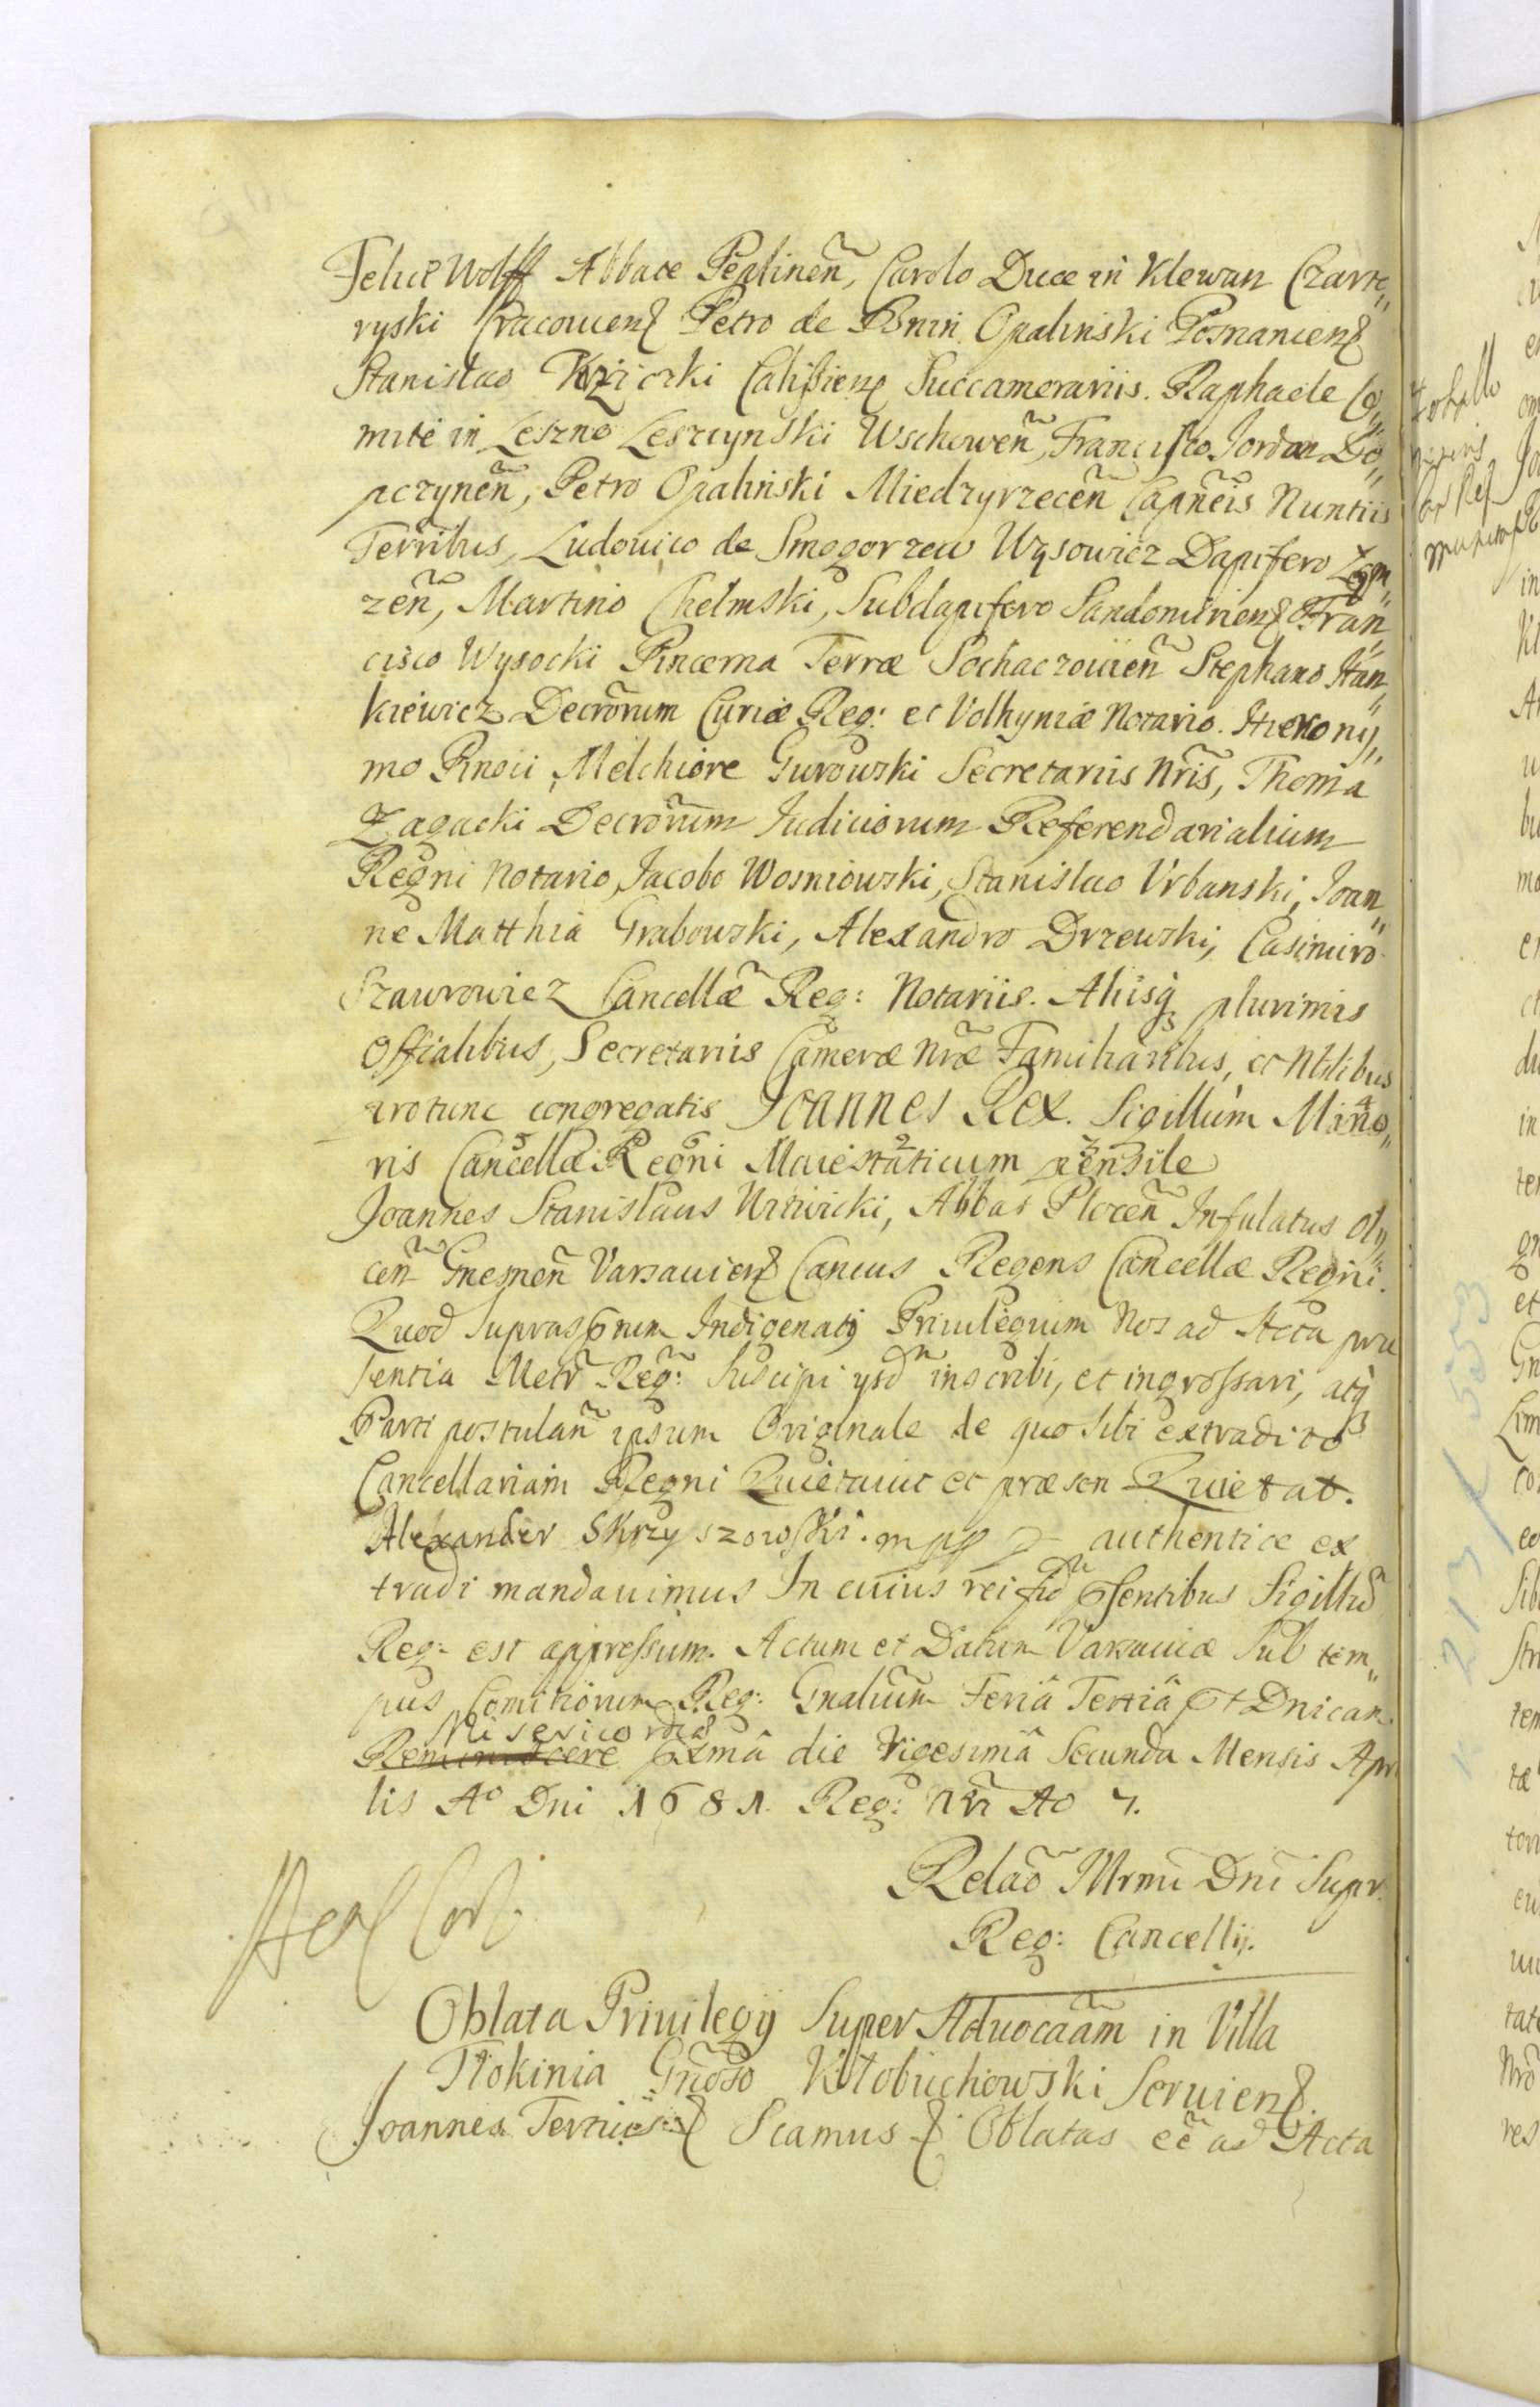 Felice Wolff Abbate Peplineñ, Carolo Duce in Klewan Czarto„
ryski Cracouien Petro de Bnin Opalinski Posnanien
Stanislao Krzicki Calisien Succamerariis. Raphaele Co„
mite in Leszno Leszczynski Wschoweñ, Francisco Jordan Do„
pczyneñ, Petro Opalinski Miedzyrzeceñ Capñeis Nuntiis
Terribus, Ludouico de Smogorzew Wąsowicz Dapifero Łom„
zeñ, Martino Chełmski, Subdapifero Sandomirien Fran„
cisco Wysocki Pincerna Terræ Sochaczouieñ Stephano Han„
kiewicz Decrõrum Curiæ Reg: et Volhyniæ Notario. Hierony„
mo Pinoci, Melchiore Gurowski Secretariis Nrĩs, Thoma
Zagacki Decrõrum Iudiciorum Referendarialium
Regni Notario, Jacobo Wosniowski, Stanislao Vrbanski, Joan„
ne Matthia Grabowski, Alexandro Drzewski, Casimiro
Szawrowicz Cancellæ Reg: Notariis. Aliisq plurimis
Offialibus, Secretariis Cameræ Nræ Familiaribus, et Nbilibus
protunc congregatis Joannes Rex. Sigillum Mino„
ris Cancellæ Regni Maiestaticum pensile
Joannes Stanislaus Witwicki, Abbas Ploceñ Infulatus Oly„
ceñ Gnesneñ Varsauien Cancus Regens Cancellæ Regni.
Quod suprasptum Indigenatus Priuilegium Nos ad Acta præ
sentia Metr Reg: suscipi ysd inscribi, et ingrossari, atq
Parti postulañ ipsum Originale de quo sibi extradito
Cancellariam Regni Quietauit et præsen Quietat.
Alexander Skrzyszowski. mpp authentice ex
tradi mandauimus In cuius rei fid psentibus Sigillũ
Reg: est appressum. Actum et Datum Varsauiæ Sub tem„
pus Comitiorum Reg: Gnalium Feriâ Tertiâ pt Dnicam
Misericordiæ
Reminiscere pxmâ die Vigesimâ Secunda Mensis Apri
lis Ao Dni 1681. Reg: Nri Ao 7.
Relaõ Illrmi Dni Supr.
Reg: Cancellij.
Oblata Priuilegij Super Aduocaãm in Villa
Tłokinia Gñoso Kłobuchowski Seruien.
Joannes Tertius Scamus Oblatas eẽ ad Acta